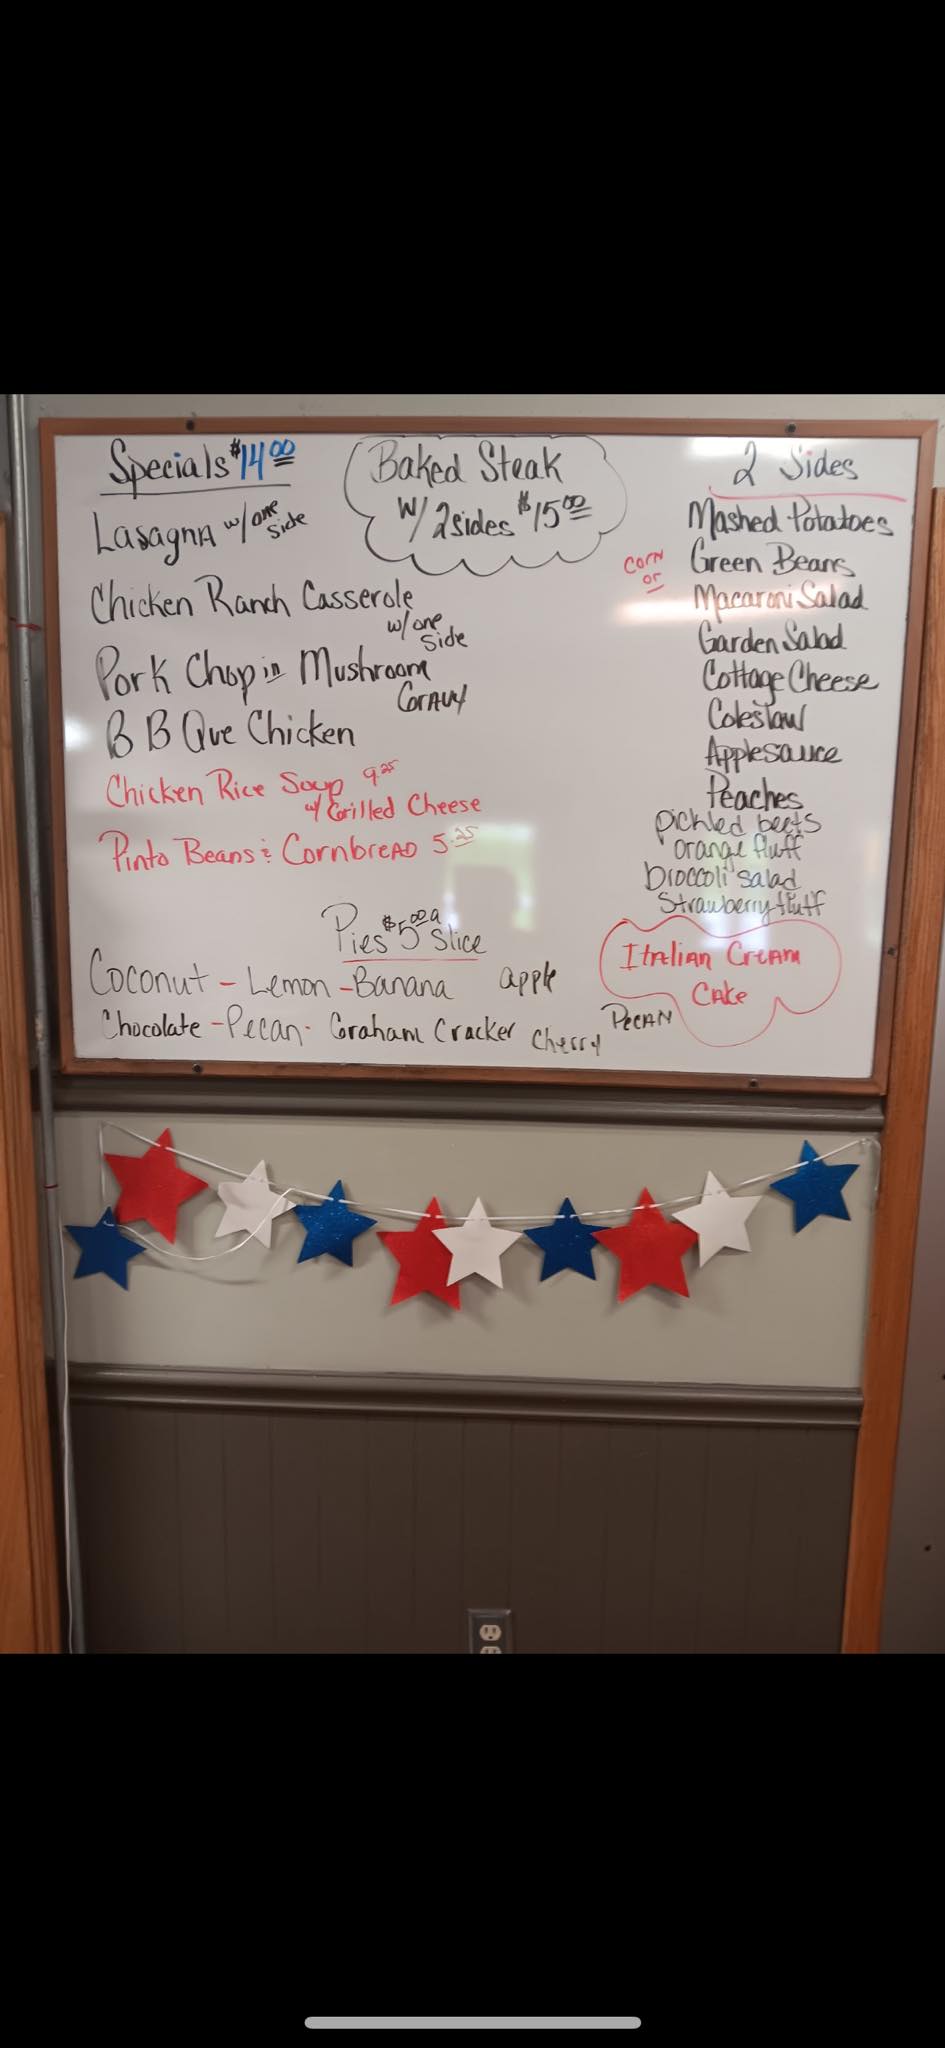 Specials $14.00
Lasagna w/ one side
Chicken Ranch Casserole
w/ one side
Pork Chop in Mushroom
Gravy
B B Que Chicken
Chicken Rice Soup 9.25
w/ Grilled Cheese
Pinto Beans & Cornbread 5.25
Baked Steak
W/ 2 sides $15.00
2 Sides
Mashed Potatoes
Corn or Green Beans
Macaroni Salad
Garden Salad
Cottage Cheese
Coleslaw
Applesauce
Peaches
pickled beets
orange fluff
broccoli salad
Strawberry fluff
Pies $5.00 a Slice
Coconut - Lemon - Banana apple
Chocolate - Pecan - Graham Cracker Cherry Pecan
Italian Cream
Cake